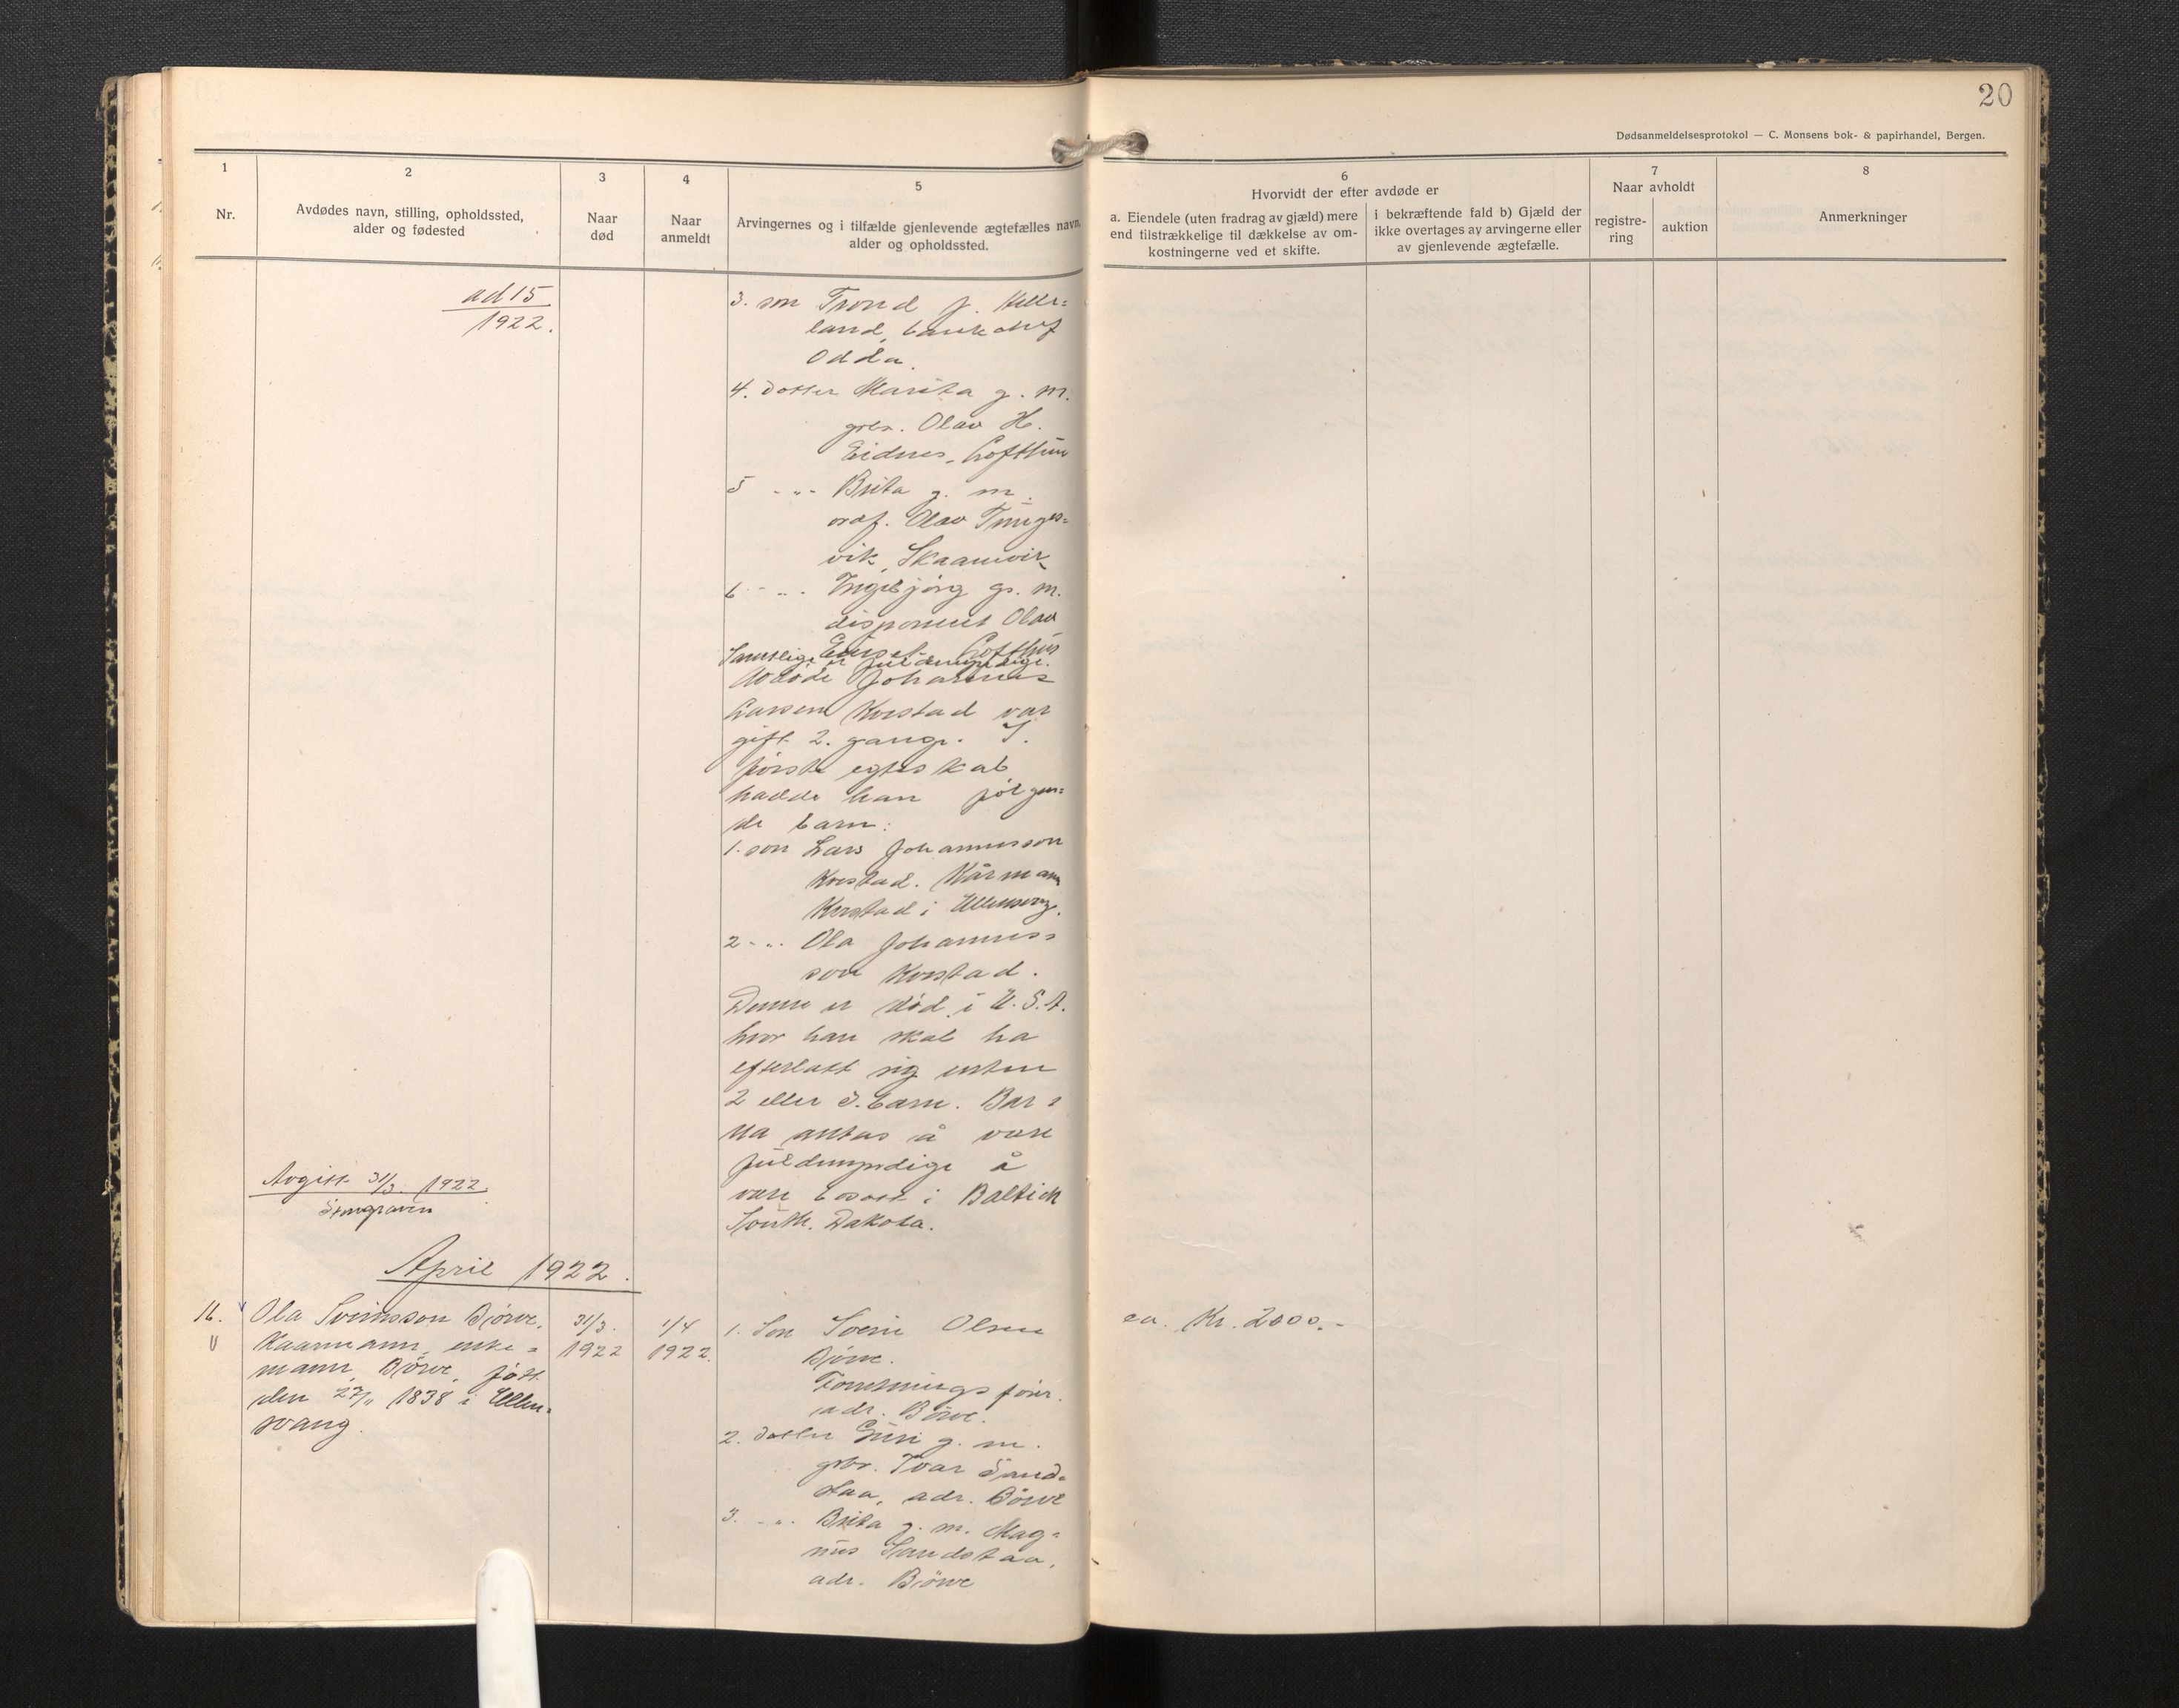 20
Dødsanmeldelsesprotokol — C. Monsens bok- & papirhandel, Bergen.
1
Nr.
2
Avdødes navn, stilling, opholdssted,
alder og fødested
3
Naar
død
4
Naar
anmeldt
5
Arvingernes og i tilfælde gjenlevende ægtefælles navn,
alder og opholdssted.
6
Hvorvidt der efter avdøde er
a. Eiendele (uten fradrag av gjæld) mere
end tilstrækkelige til dækkelse av om-
kostningerne ved et skifte.
i bekræftende fald b) Gjæld der
ikke overtages av arvingerne eller
av gjenlevende ægtefælle.
7
Naar avholdt
registre-
ring
auktion
8
Anmerkninger
ad 15
1922.
3. son Trond J.
land, bankchef
Odda.
4. Dotter Marita g. m.
grbr. Olav H.
Eidnes, Lofthus
5 - " - Brita g. m.
ordf. Olav
vik, Skaanevik
6 - " - Ingebjörg g. m.
disponent Olav
Lofthus
Samtlige er fuldmyndige.
Avdöde Johannes
Larsen Kvestad var
gift 2. gange. I.
förste egteskab
hadde han fölgen=
de barn:
1. son Lars Johannesson
Kvestad. Kårmann
Kvestad i Ullensvg.
2 - " - Ola Johannes=
son Kvestad.
Denne er död i U.S.A.
hvor han skal ha
efterlatt sig enten
2 eller 3. barn. Bar=
na antas å være
fuldmyndige å
være bosatt i Baltich
South. Dakota.
Avgitt 31/3. 1922.
April 1922.
16.
Ola Sveinsson Börve.
Kaarmann, enke=
mann, Börve, fött
den 27/11 1838 i Ullen=
svang.
31/3.
1922
1/4
1922.
1. Son Svein Olsen
Börve.
Forretningsförer.
adr. Börve.
2. Dotter Guri g. m.
grbr. Ivar Sand=
staa, adr. Börve
3. - " - Brita g. m. Mag=
nus Sandstaa,
adr. Börve
ca. Kr. 2000.-